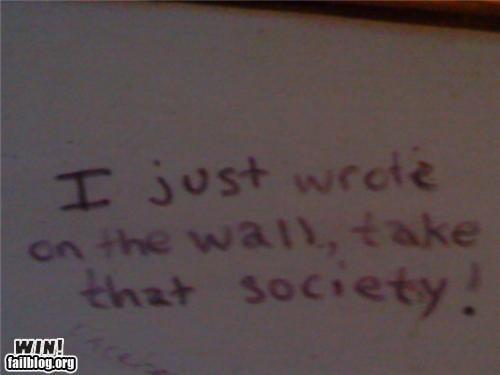 I just wrote
on the wall, take
that society!
WIN!
failblog.org